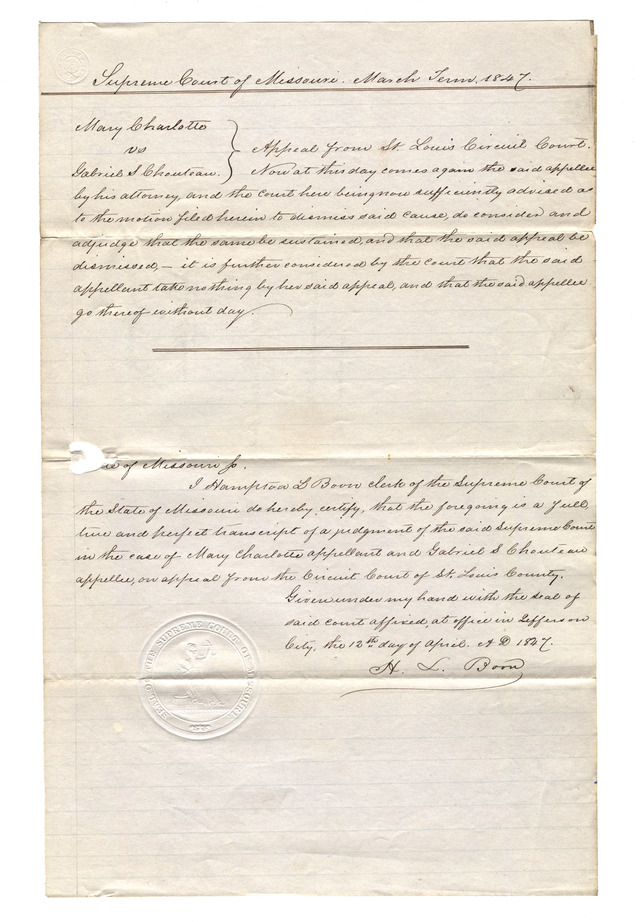 Supreme Court of Missouri. March Term, 1847.
Mary Charlotte
vs
Gabriel S Chouteau.
Appeal from St. Louis Circuit Court.
Now at this day comes again the said appellee
by his attorney, and the court here being now sufficiently advised as
to the motion filed herein to dismiss said cause, do consider and
adjudge that the same be sustained, and that the said appeal be
dismissed, – it is further considered by the court that the said
appellant take nothing by her said appeal, and that the said appellee
go thereof without day.
of Missouri
I Hampton L Boon clerk of the Supreme Court of
the State of Missouri do hereby certify, that the foregoing is a full
true and perfect transcript of a judgment of the said Supreme Court
in the case of Mary Charlotte appellant and Gabriel S Chouteau
appellee, on appeal from the Circuit Court of St. Louis County.
Given under my hand with the seal of
said court affixed, at office in Jefferson
City, the 12th day of April. A D 1847.
H. L. Boon
SEAL OF THE SUPREME COURT OF MISSOURI